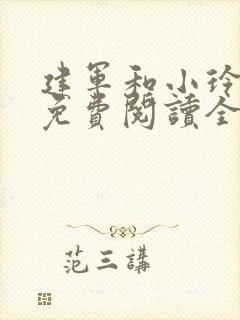 建軍和小玲
免費閱讀全
范三講